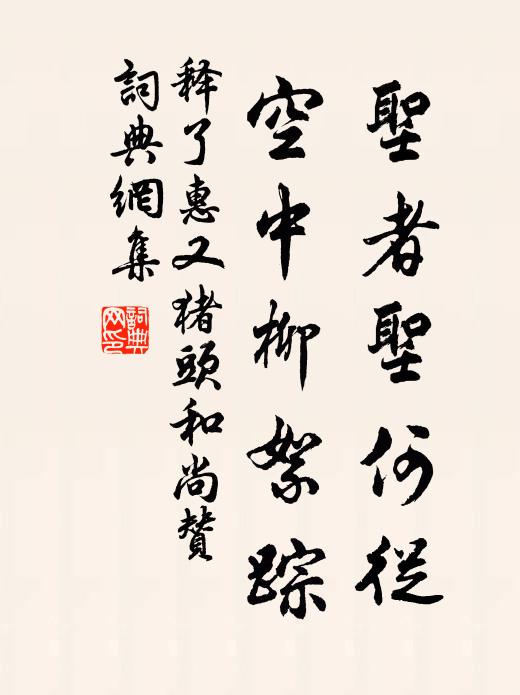 聖者聖何從
空中柳絮踪
释了惠又猪頭和尚贊
詞典網集
詞典网印